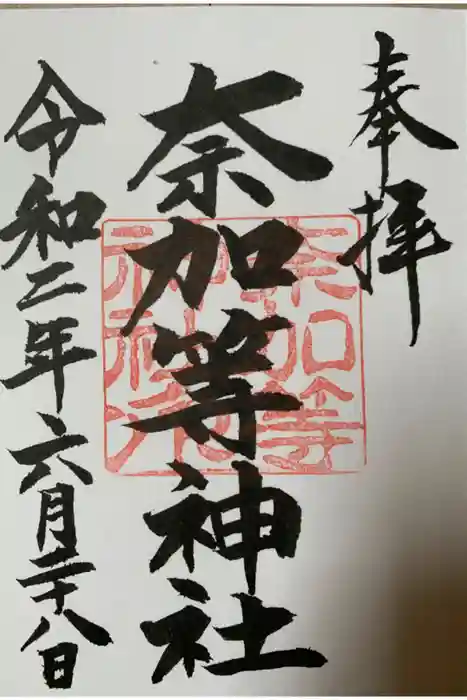 奉拝
奈加等神社
奈加等
神社印
令和二年六月二十八日